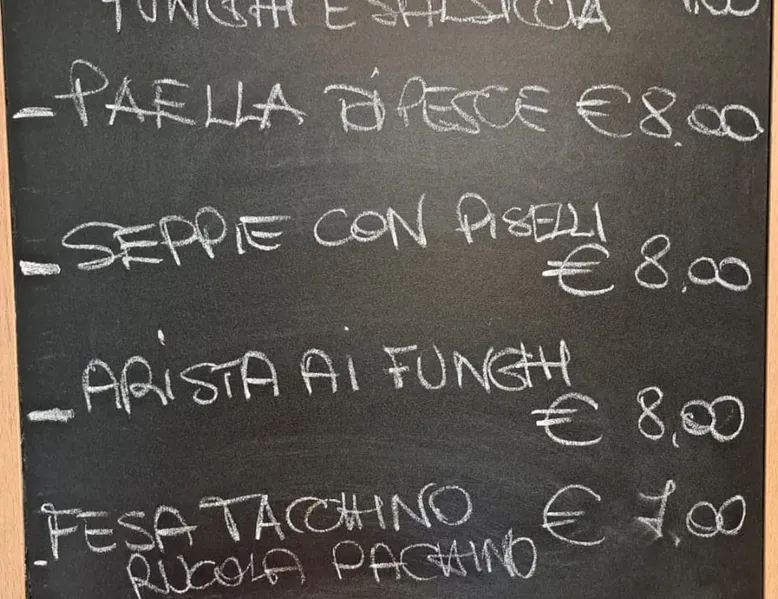 FUNGHI E SALSICCIA
- PAELLA DI PESCE € 8,00
- SEPPIE CON PISELLI
€ 8,00
- ARISTA AI FUNGHI
€ 8,00
- FESA TACCHINO € 7,00
RUCOLA PACHINO